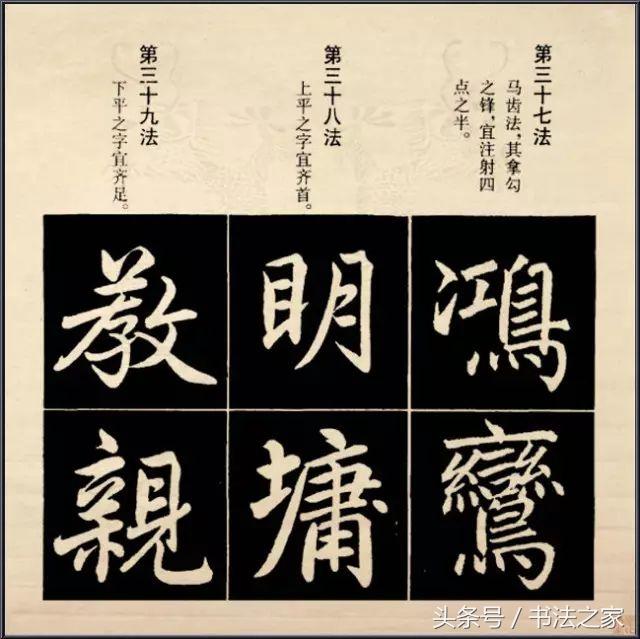 第三十七法
马齿法，其拿勾
之锋，宜注射四
点之半。
第三十八法
上平之字宜齐首。
第三十九法
下平之字宜齐足。
鴻
鸞
明
墉
教
親
头条号／书法之家